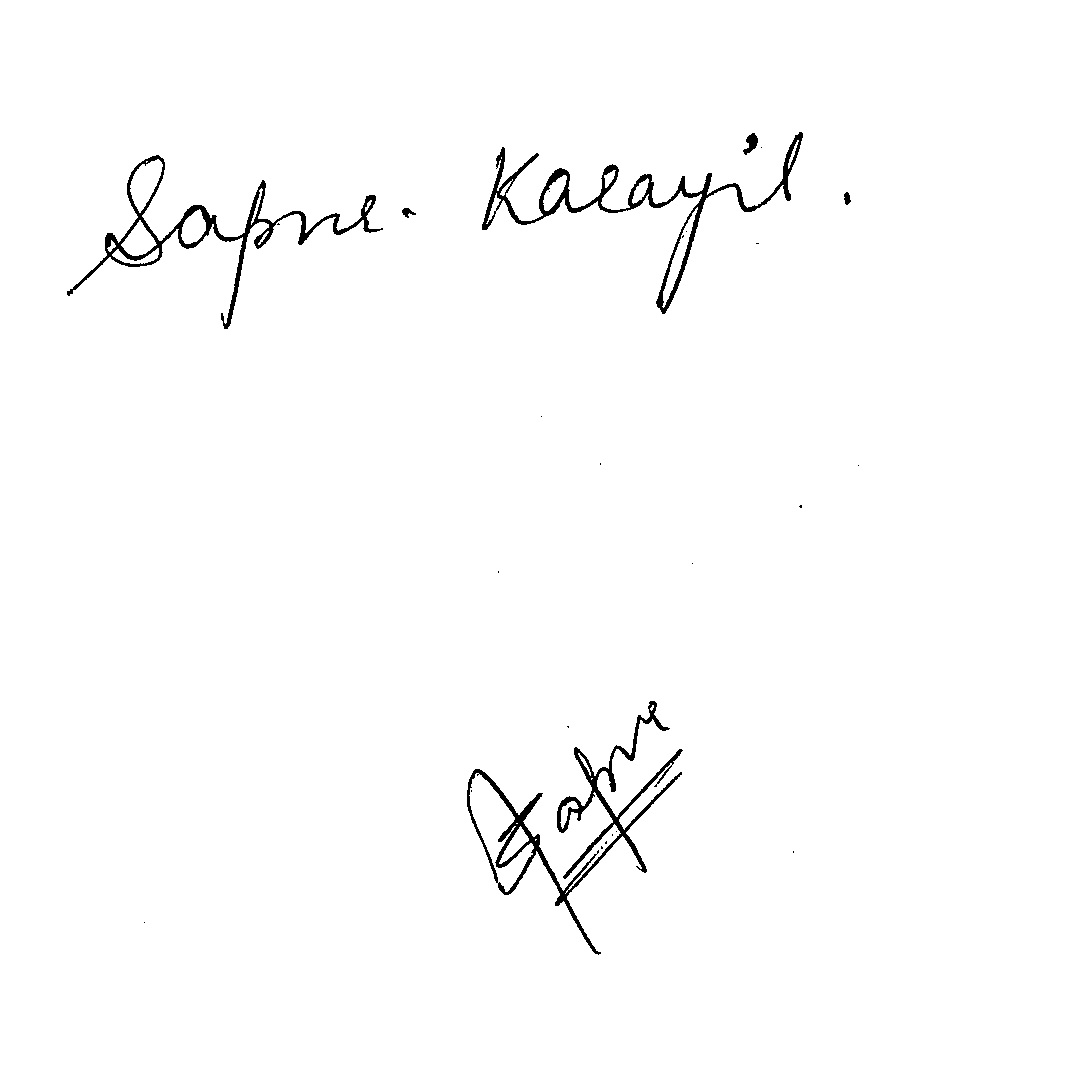 Sapne. Karayil.
Sapne